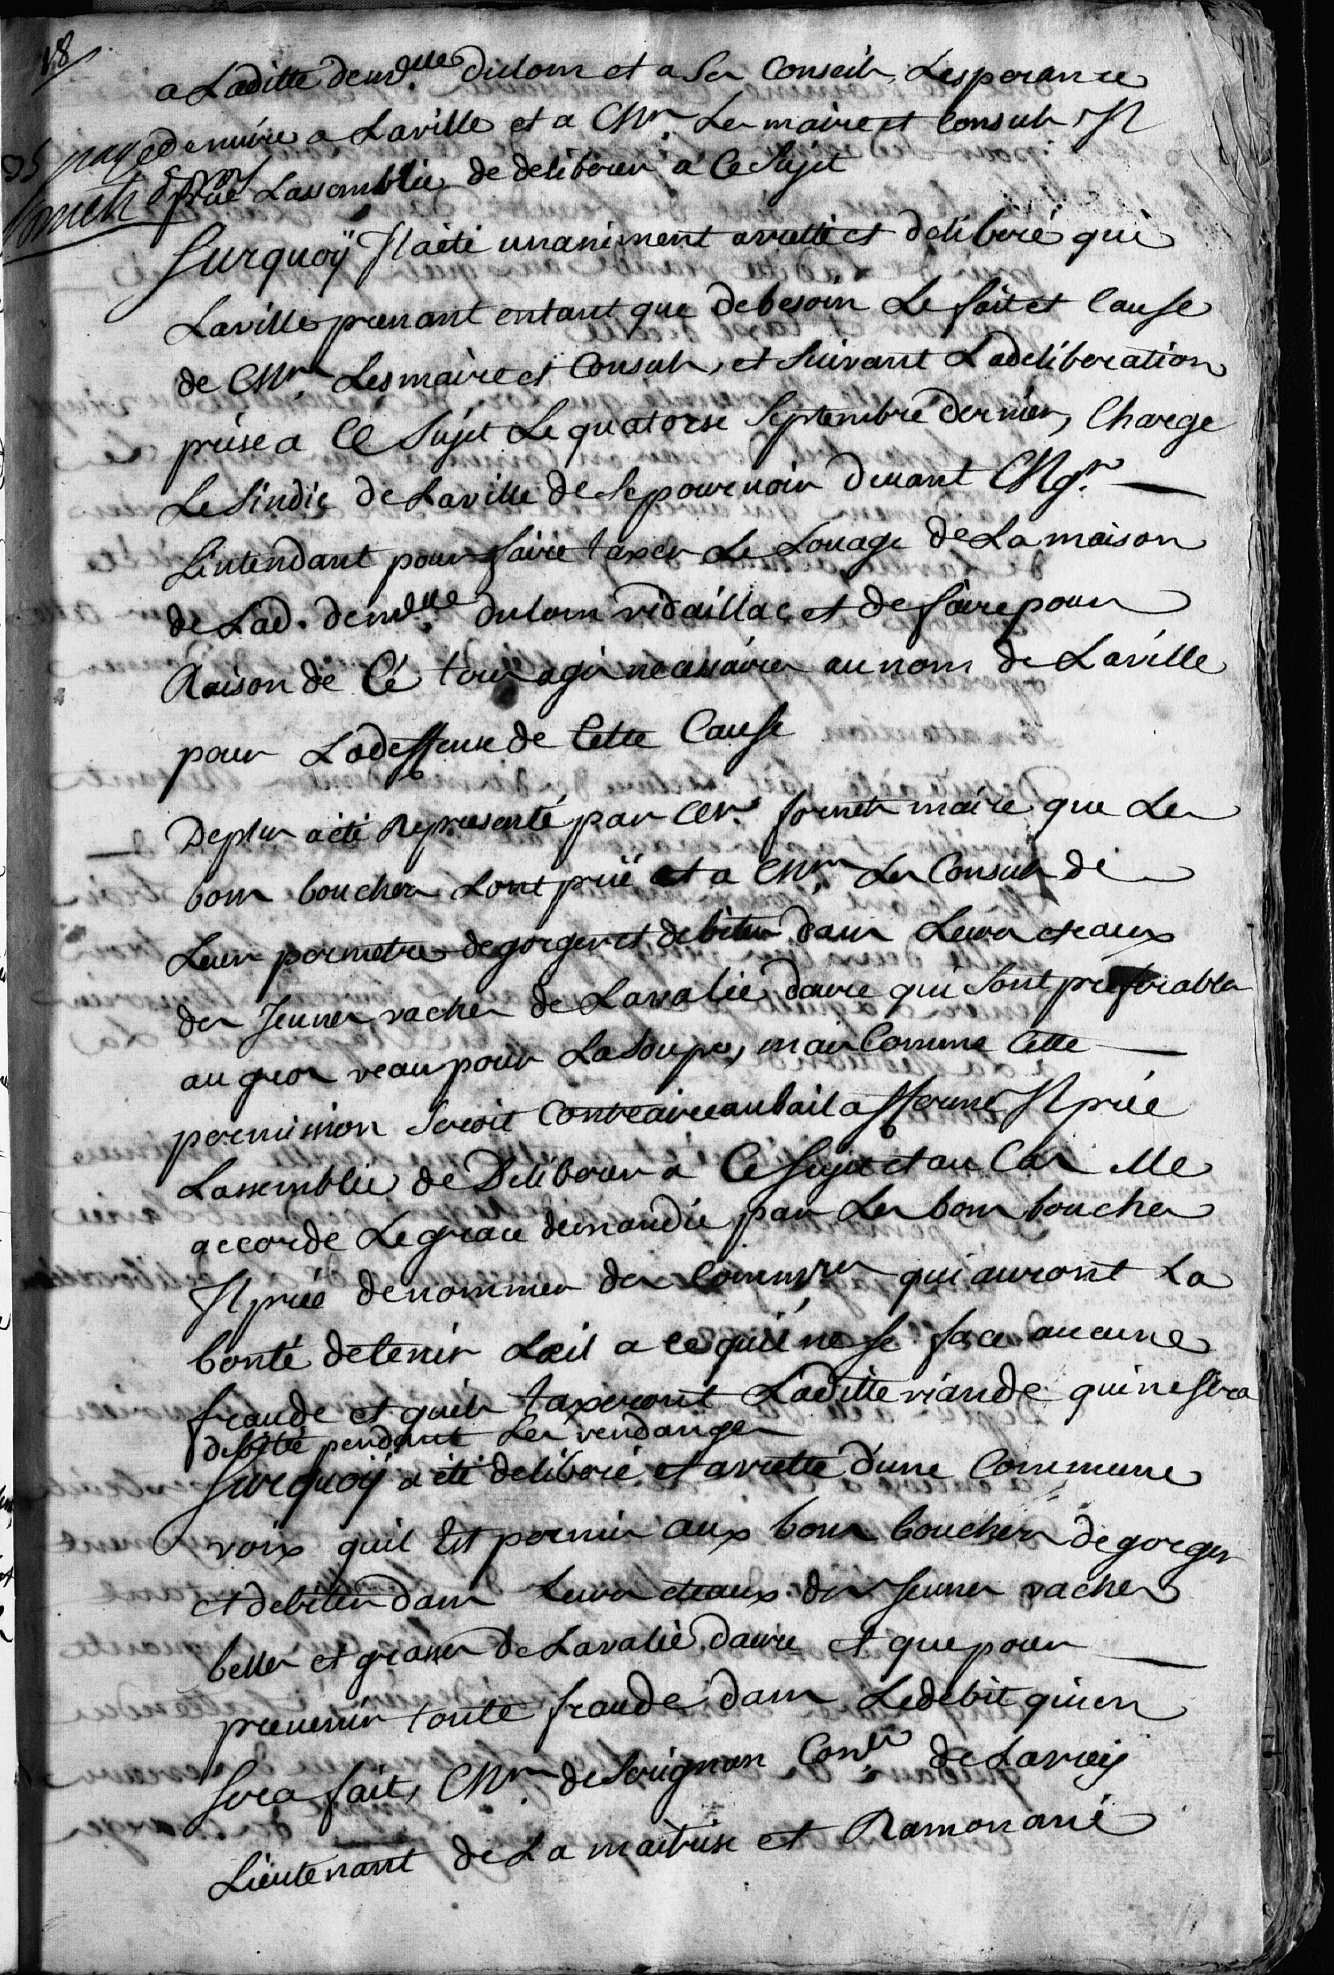 18
a Laditte dem.lle dulom et a Ses Conseils Lesperance
de nuire a Laville et a Mrs. Les maire et Consuls Il
prie Lassemblée de deliberer a Ce Sujet
Surquoÿ Il a été unaniment arretté et deliberé que
Laville prenant entant que debesoin Le fait et Cause
de Mrs. Les maire et Consuls, et Suivant La deliberation
prise a Ce Sujet Le quatorse Septembre dernier, Charge
Le Sindic de Laville de Se pourvoir devant Mgr.
Lintendant pour faire taxer Le Louage de La maison
de Lad. dem.lle dulom vidaillac et de faire pour
Raison de Cé tous agis necessaires au nom de Laville
pour La deffense de Cette Cause
De plus a été Representé par Mr. maire que Les
bons bouchers Lont prié et a Mrs. Les Consuls de
Leur permetre degorger et debiter dans Leurs etaux
des Jeunes vaches de Lavalée daure qui Sont preferables
au gros veau pour La Soupe, mais Comme Cette
permission Seroit Contraire au bail afferme Il prie
Lassemblée de Deliberer a Ce Sujet et au Cas Elle
accorde La grace demandée par Les bons bouchers
Il prie denommer des Commres qui auront La
bonté detenir Lœil a ce quil ne Se face aucune
fraude et quils taxeront Laditte viande qui ne Sera
debitée pendant Les vendanges
Surquoÿ a été deliberé et arretté d'une Commune
voix quil Est permis aux bons bouchers de gorger
et debiter dans Leurs etaux des Jeunes vaches
belles et grasses de Lavalée daure et que pour
prevenir toute fraude dans Le debit qui en
Sera fait, Mrs. de Serignan Coner. de Lavay
Lieutenant de La maitrise et